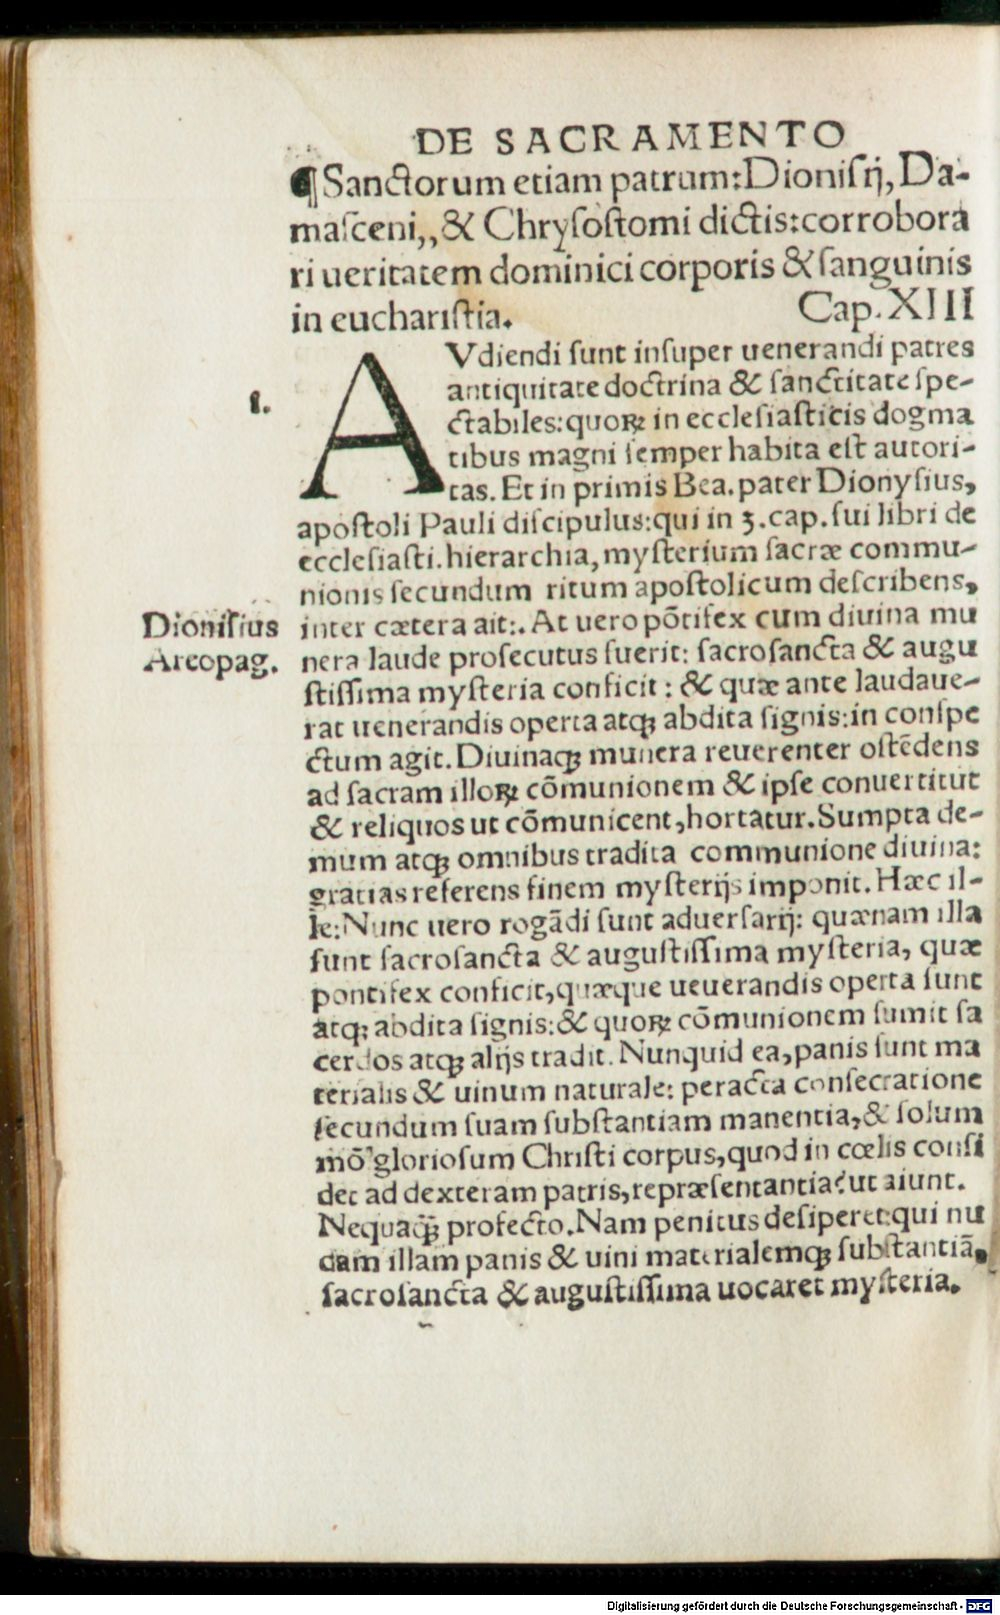 DE SACRAMENTO
¶Sanctorum etiam patrum:Dionisij, Da-
masceni,,& Chrysostomi dictis:corrobora
ri ueritatem dominici corporis & sanguinis
in eucharistia.
Cap.XIII
AVdiendi sunt insuper uenerandi patres
1.
antiquitate doctrina & sanctitate spe-
ctabiles:quoꝝ in ecclesiasticis dogma
tibus magni semper habita est autori-
tas. Et in primis Bea.pater Dionysius,
apostoli Pauli discipulus:qui in 3.cap.sui libri de
ecclesiasti.hierarchia, mysterium sacræ commu-
nionis secundum ritum apostolicum describens,
Dionisius
Areopag.
inter cætera ait:.At uero põtifex cum diuina mu
nera laude prosecutus fuerit: sacrosancta & augu
stissima mysteria conficit : & quæ ante laudaue-
rat uenerandis operta atqꝫ abdita signis:in conspe
ctum agit.Diuinaqꝫ munera reuerenter ostẽdens
ad sacram illoꝝ cõmunionem & ipse conuertitut
& reliquos ut cõmunicent,hortatur.Sumpta de-
mum atqꝫ omnibus tradita communione diuina:
gratias referens finem mysterijs imponit. Hæc il-
le:Nunc uero rogãdi sunt aduersarij: quænam illa
sunt sacrosancta & augustissima mysteria, quæ
pontifex conficit,quæque ueuerandis operta sunt
atqꝫ abdita signis:& quoꝝ cõmunionem sumit sa
cerdos atqꝫ alijs tradit. Nunquid ea,panis sunt ma
terialis & uinum naturale: peracta consecratione
secundum suam substantiam manentia,& solum
mõ gloriosum Christi corpus,quod in cœlis consi
det ad dexteram patris,repræsentantia?ut aiunt.
Nequaqꝫ̃ profecto.Nam penitus desiperet:qui nu
dam illam panis & uini materialemqꝫ substantiã,
sacrosancta & augustissima uocaret mysteria.
Digitalisierung gefördert durch die Deutsche Forschungsgemeinschaft - DFG